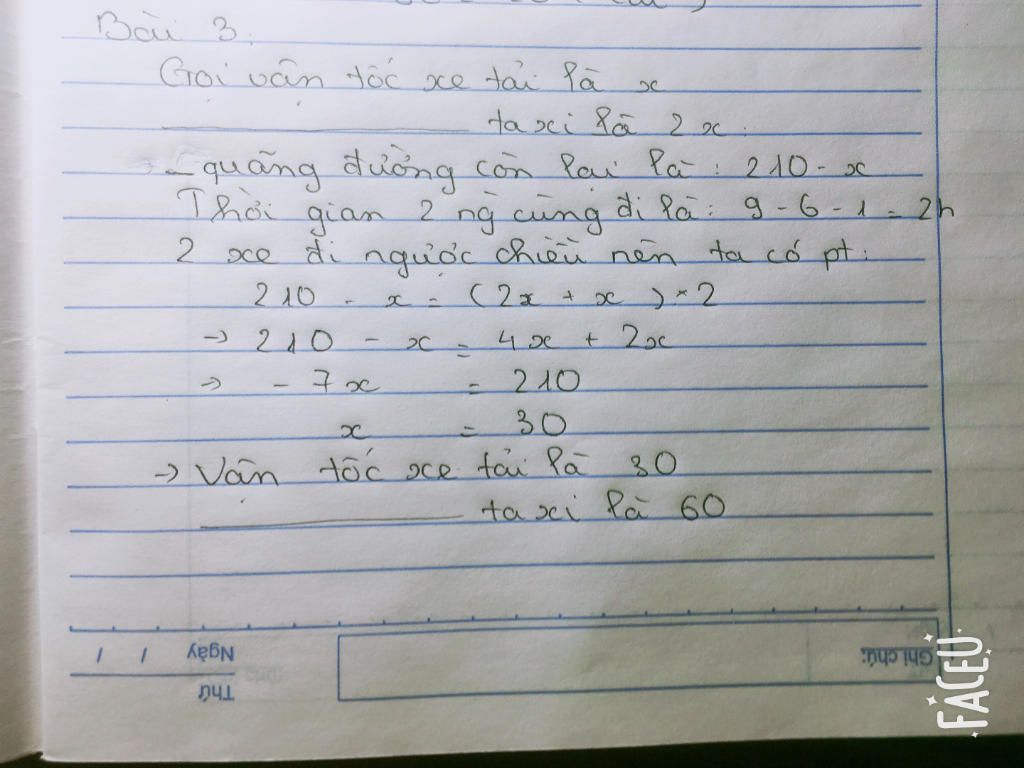 Bài 3:
Gọi vận tốc xe tải là x
taxi là 2x.
- quãng đường còn lại là: 210 - x
Thời gian 2 ng cùng đi là: 9 - 6 - 1 = 2h
2 xe đi ngược chiều nên ta có pt:
210 - x = (2x + x) × 2
→ 210 - x = 4x + 2x
→ - 7x = 210
x = 30
→ Vận tốc xe tải là 30
taxi là 60
Ghi chú:
Ngày / /
Thứ
FACEU